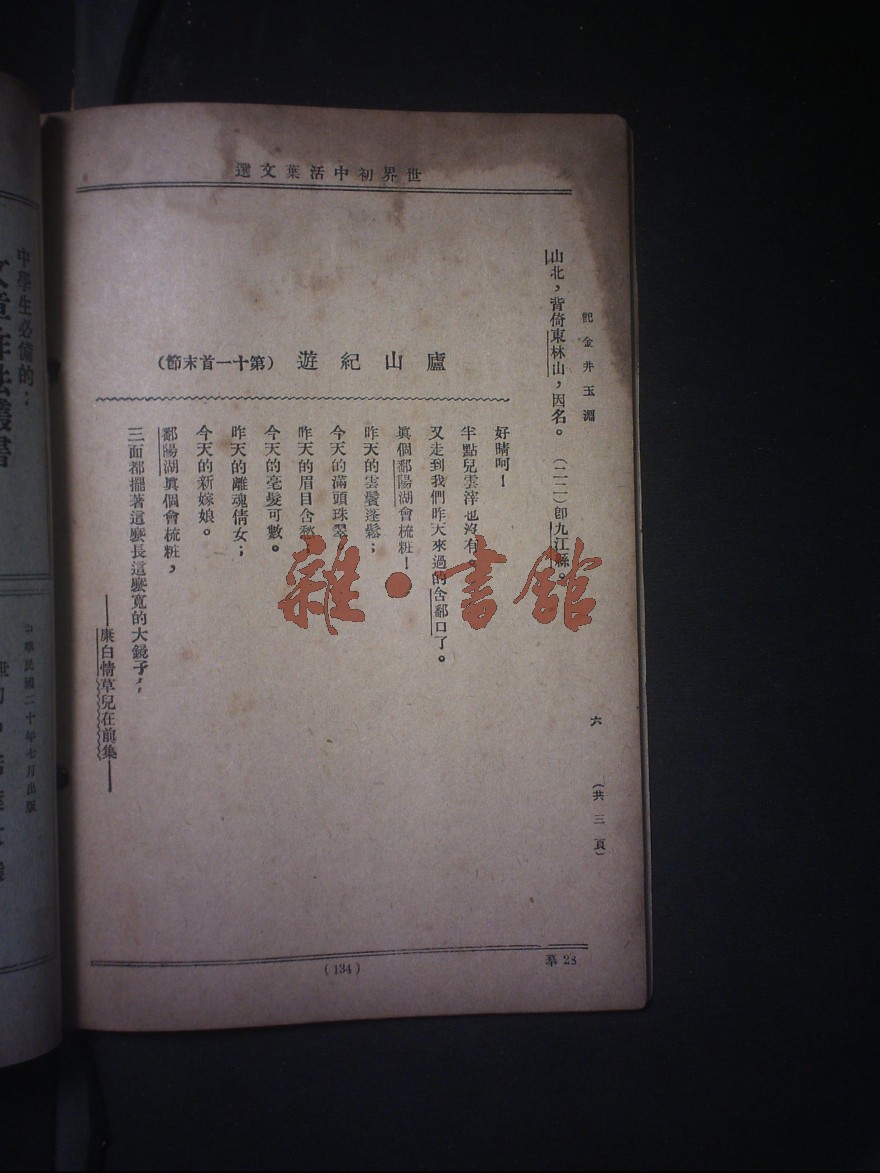 世界初中活葉文選
記金井玉淵
六
(共三頁)
山北，背倚東林山，因名。 (二二)卽九江縣。
廬山紀遊 (第十一首末節)
好晴呵！
半點兒雲滓也沒有，
又走到我們昨天來過的含鄱口了。
眞個鄱陽湖會梳粧！
昨天的雲鬢蓬鬆；
今天的滿頭珠翠
昨天的眉目含愁
今天的毫髮可數。
昨天的離魂倩女；
今天的新嫁娘。
鄱陽湖眞個會梳粧，
三面都擺著這麽長這麽寬的大鏡子，
——康白情草兒在前集——
(134)
28
雜·書館
中學生必備的：
文章作法叢書
中華民國二十年七月出版